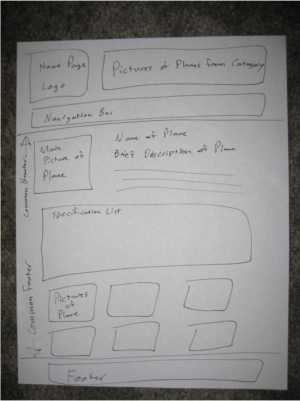 Home Page
Logo
Pictures of Planes from Category
Navigation Bar
Common Header
Main
Picture of
Plane
Name of Plane
Brief Description of Plane
Specification List
Common Footer
Pictures
of
Plane
Footer